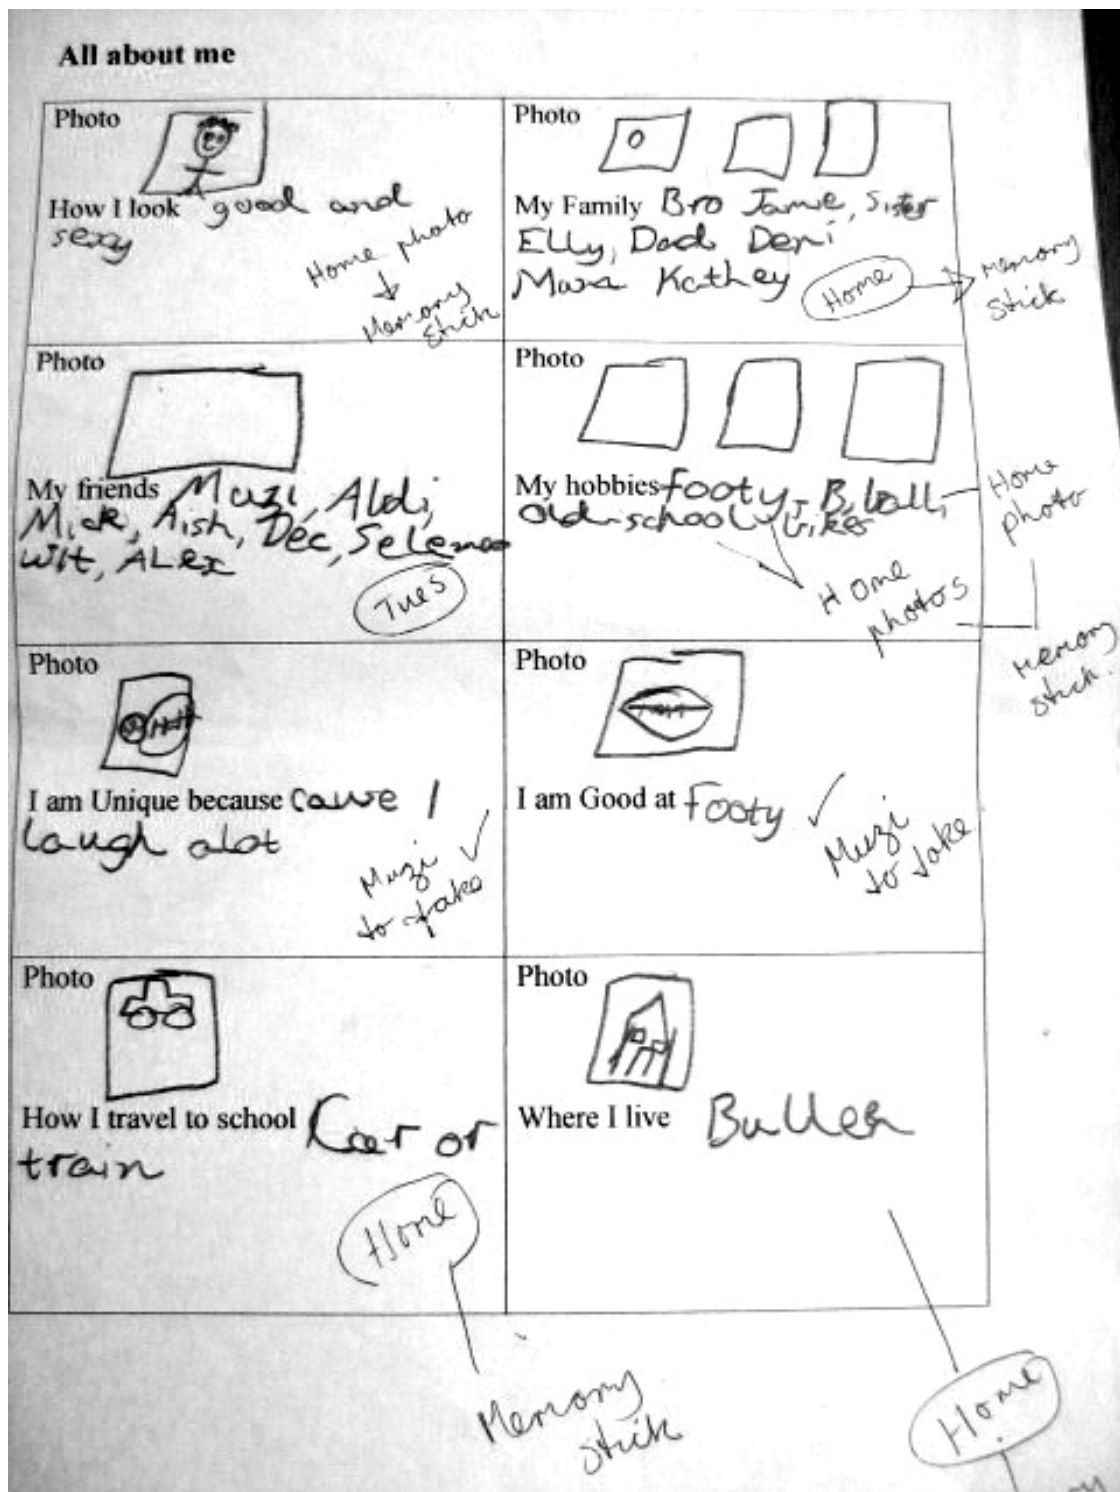 All about me
Photo
How I look good and
sexy
Home photo
Memory
stick
Photo
My Family Bro Jamie, Sister
Elly, Dad Deni
Kathey
Home
memory
stick
Photo
My friends Muzi, Aldi,
Mick, Aish, Dec,
Wit, ALex
Tues
Photo
My hobbies footy, B,ball,
old-school bikes
Home
photo
Home
photos
memory
stick.
Photo
I am Unique because cause I
laugh alot
Muzi
to take
Photo
I am Good at footy
Muzi
to take
Photo
How I travel to school Car or
train
Home
Memory
stick
Photo
Where I live
Home